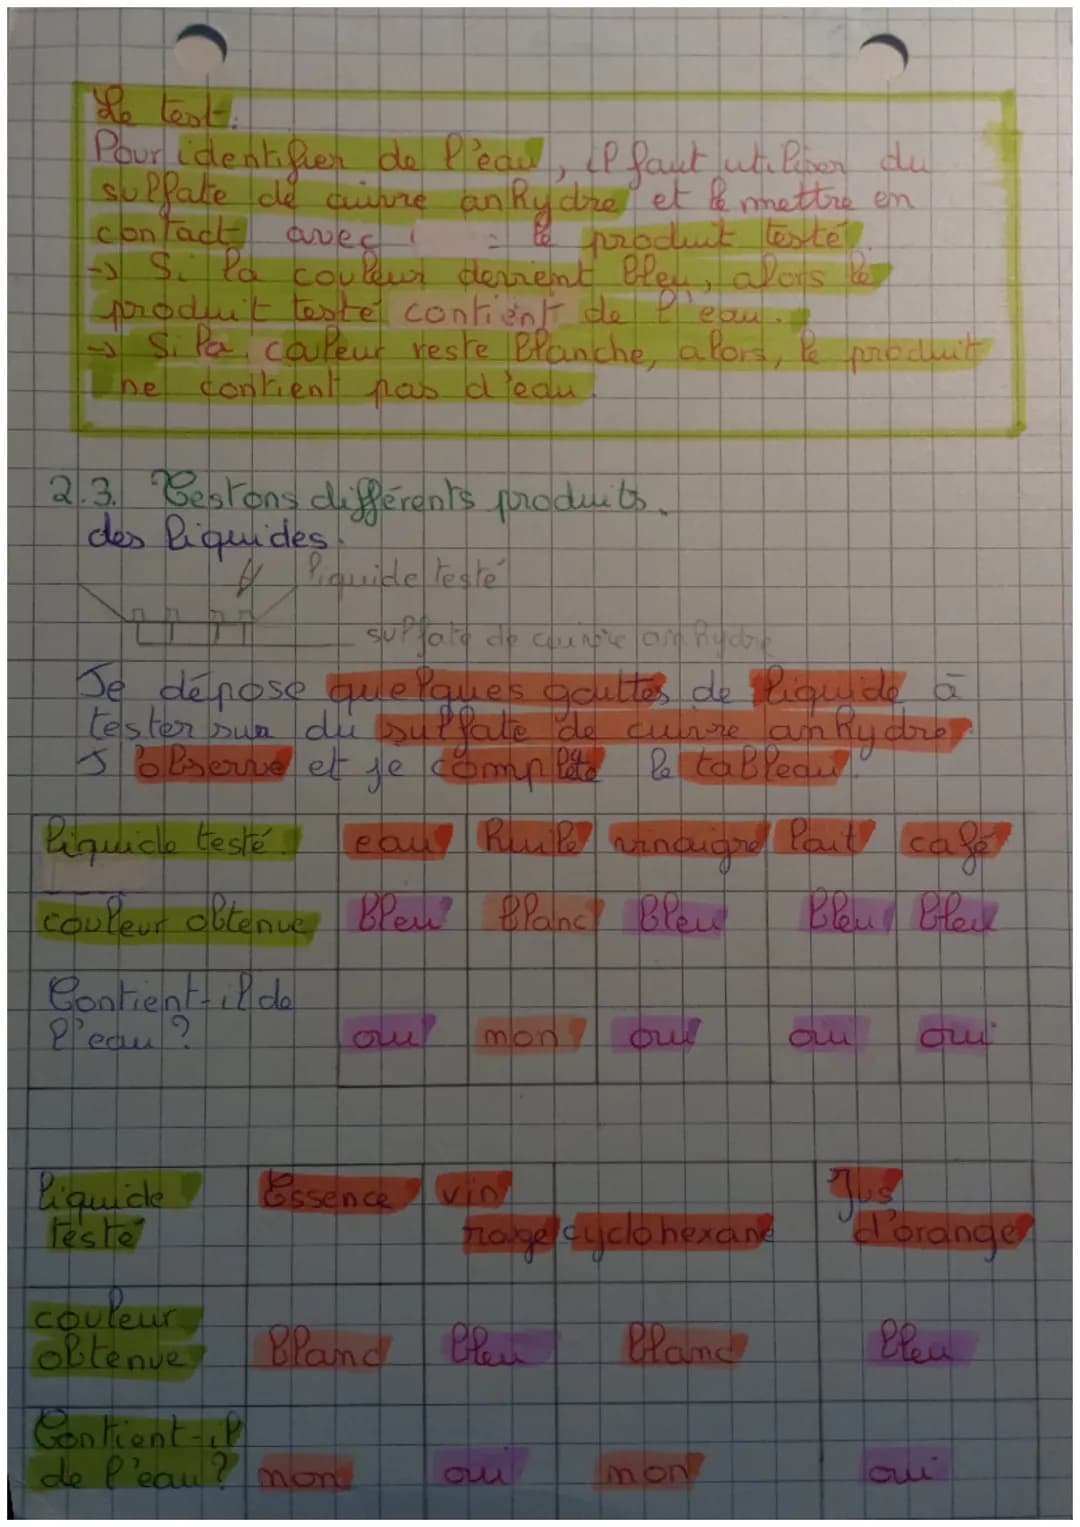 Le test:
Pour identifier de l'eau, il faut utiliser du
sulfate de cuivre anhydre et le mettre en
contact avec le produit testé.
-> Si la couleur devient bleu, alors le
produit testé contient de l'eau.
-> Si la couleur reste blanche, alors, le produit
ne contient pas d'eau.
2.3. Testons différents produits.
des liquides.
liquide testé
sulfate de cuivre anhydre
Je dépose quelques gouttes de liquide à
tester sur du sulfate de cuivre anhydre
J'observe et je complète le tableau.
liquide testé. eau huile vinaigre lait café
couleur obtenue bleu blanc bleu bleu bleu
Contient-il de
l'eau ? oui non oui oui oui
liquide Essence vin Jus
testé rouge cyclohexane d'orange
couleur
obtenue blanc bleu blanc bleu
Contient-il
de l'eau ? non oui non oui